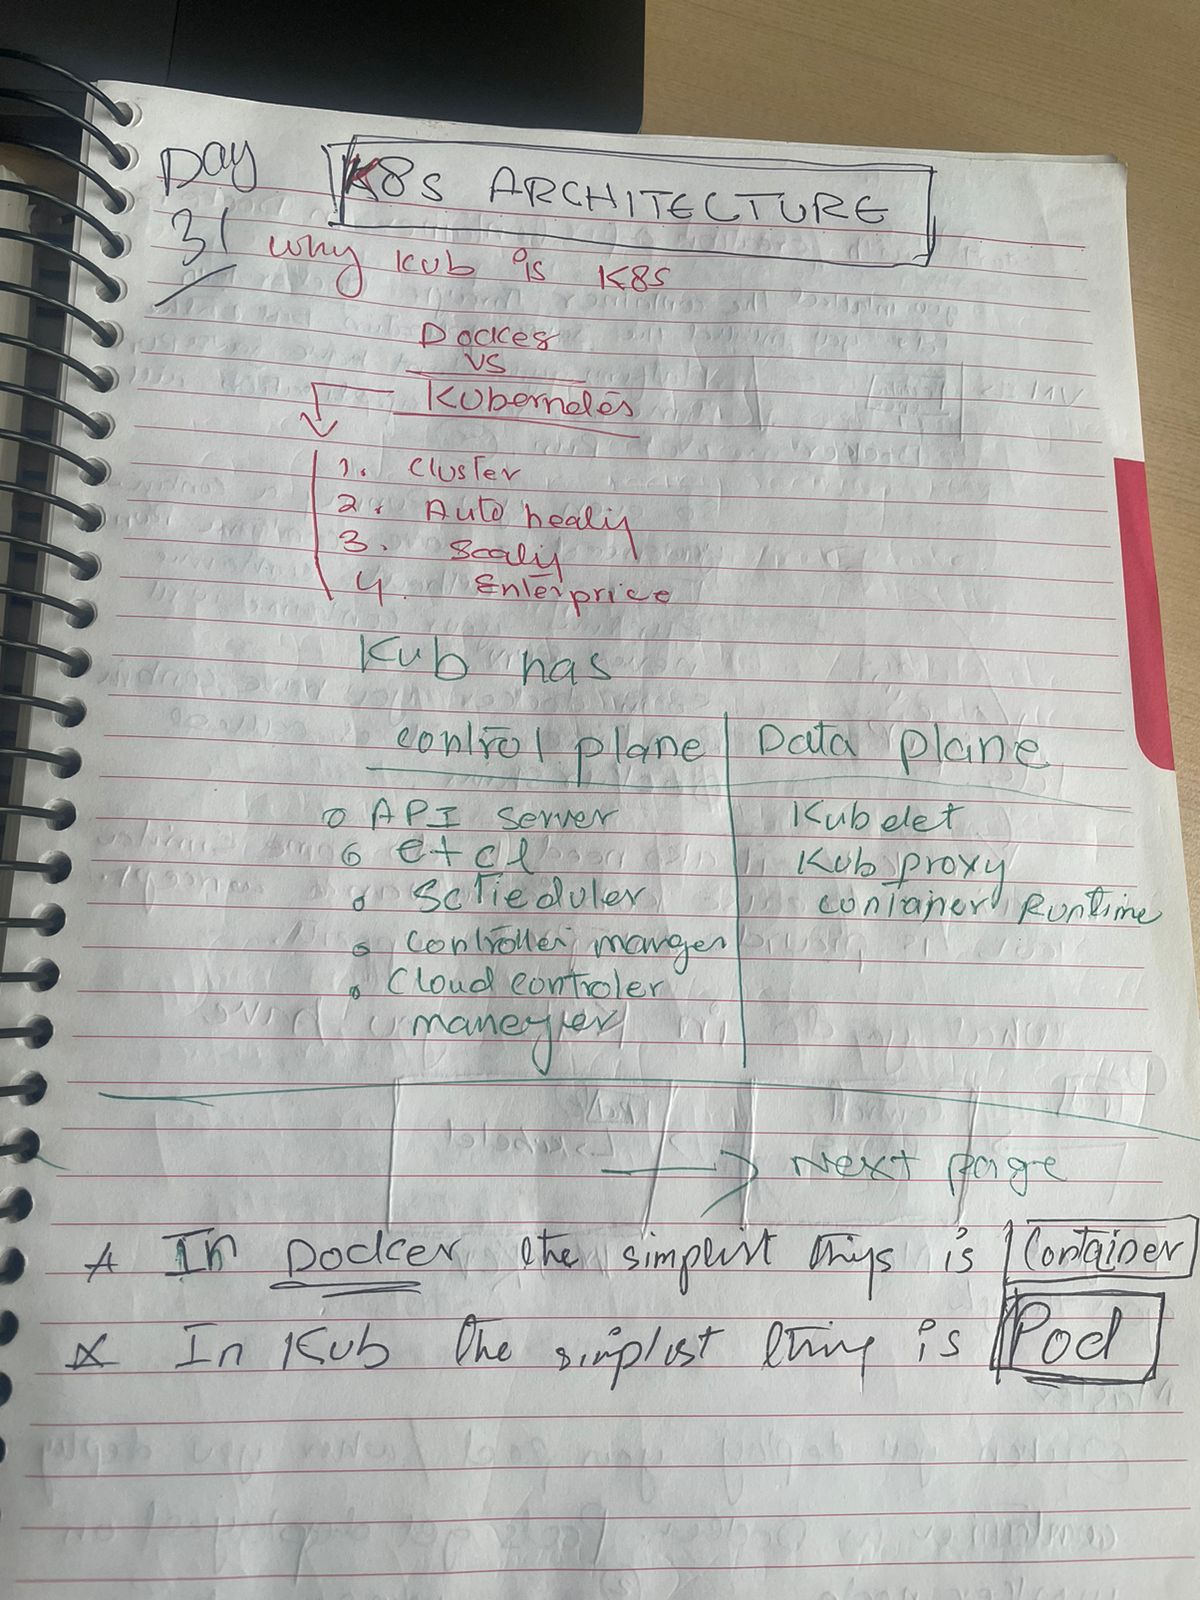 Day K8s ARCHITECTURE
31 why kub is K8S
Docker
vs
Kubernetes
1. Cluster
2. Auto healing
3. Scaling
4. Enterprice
Kub has
control plane | Data plane
o API server Kubelet
o etcd Kub proxy
o Scheduler container Runtime
o Controller manger
o Cloud controler
maneger
→ Next page
In Docker the simplist things is Container
In Kub the simplist thing is Pod